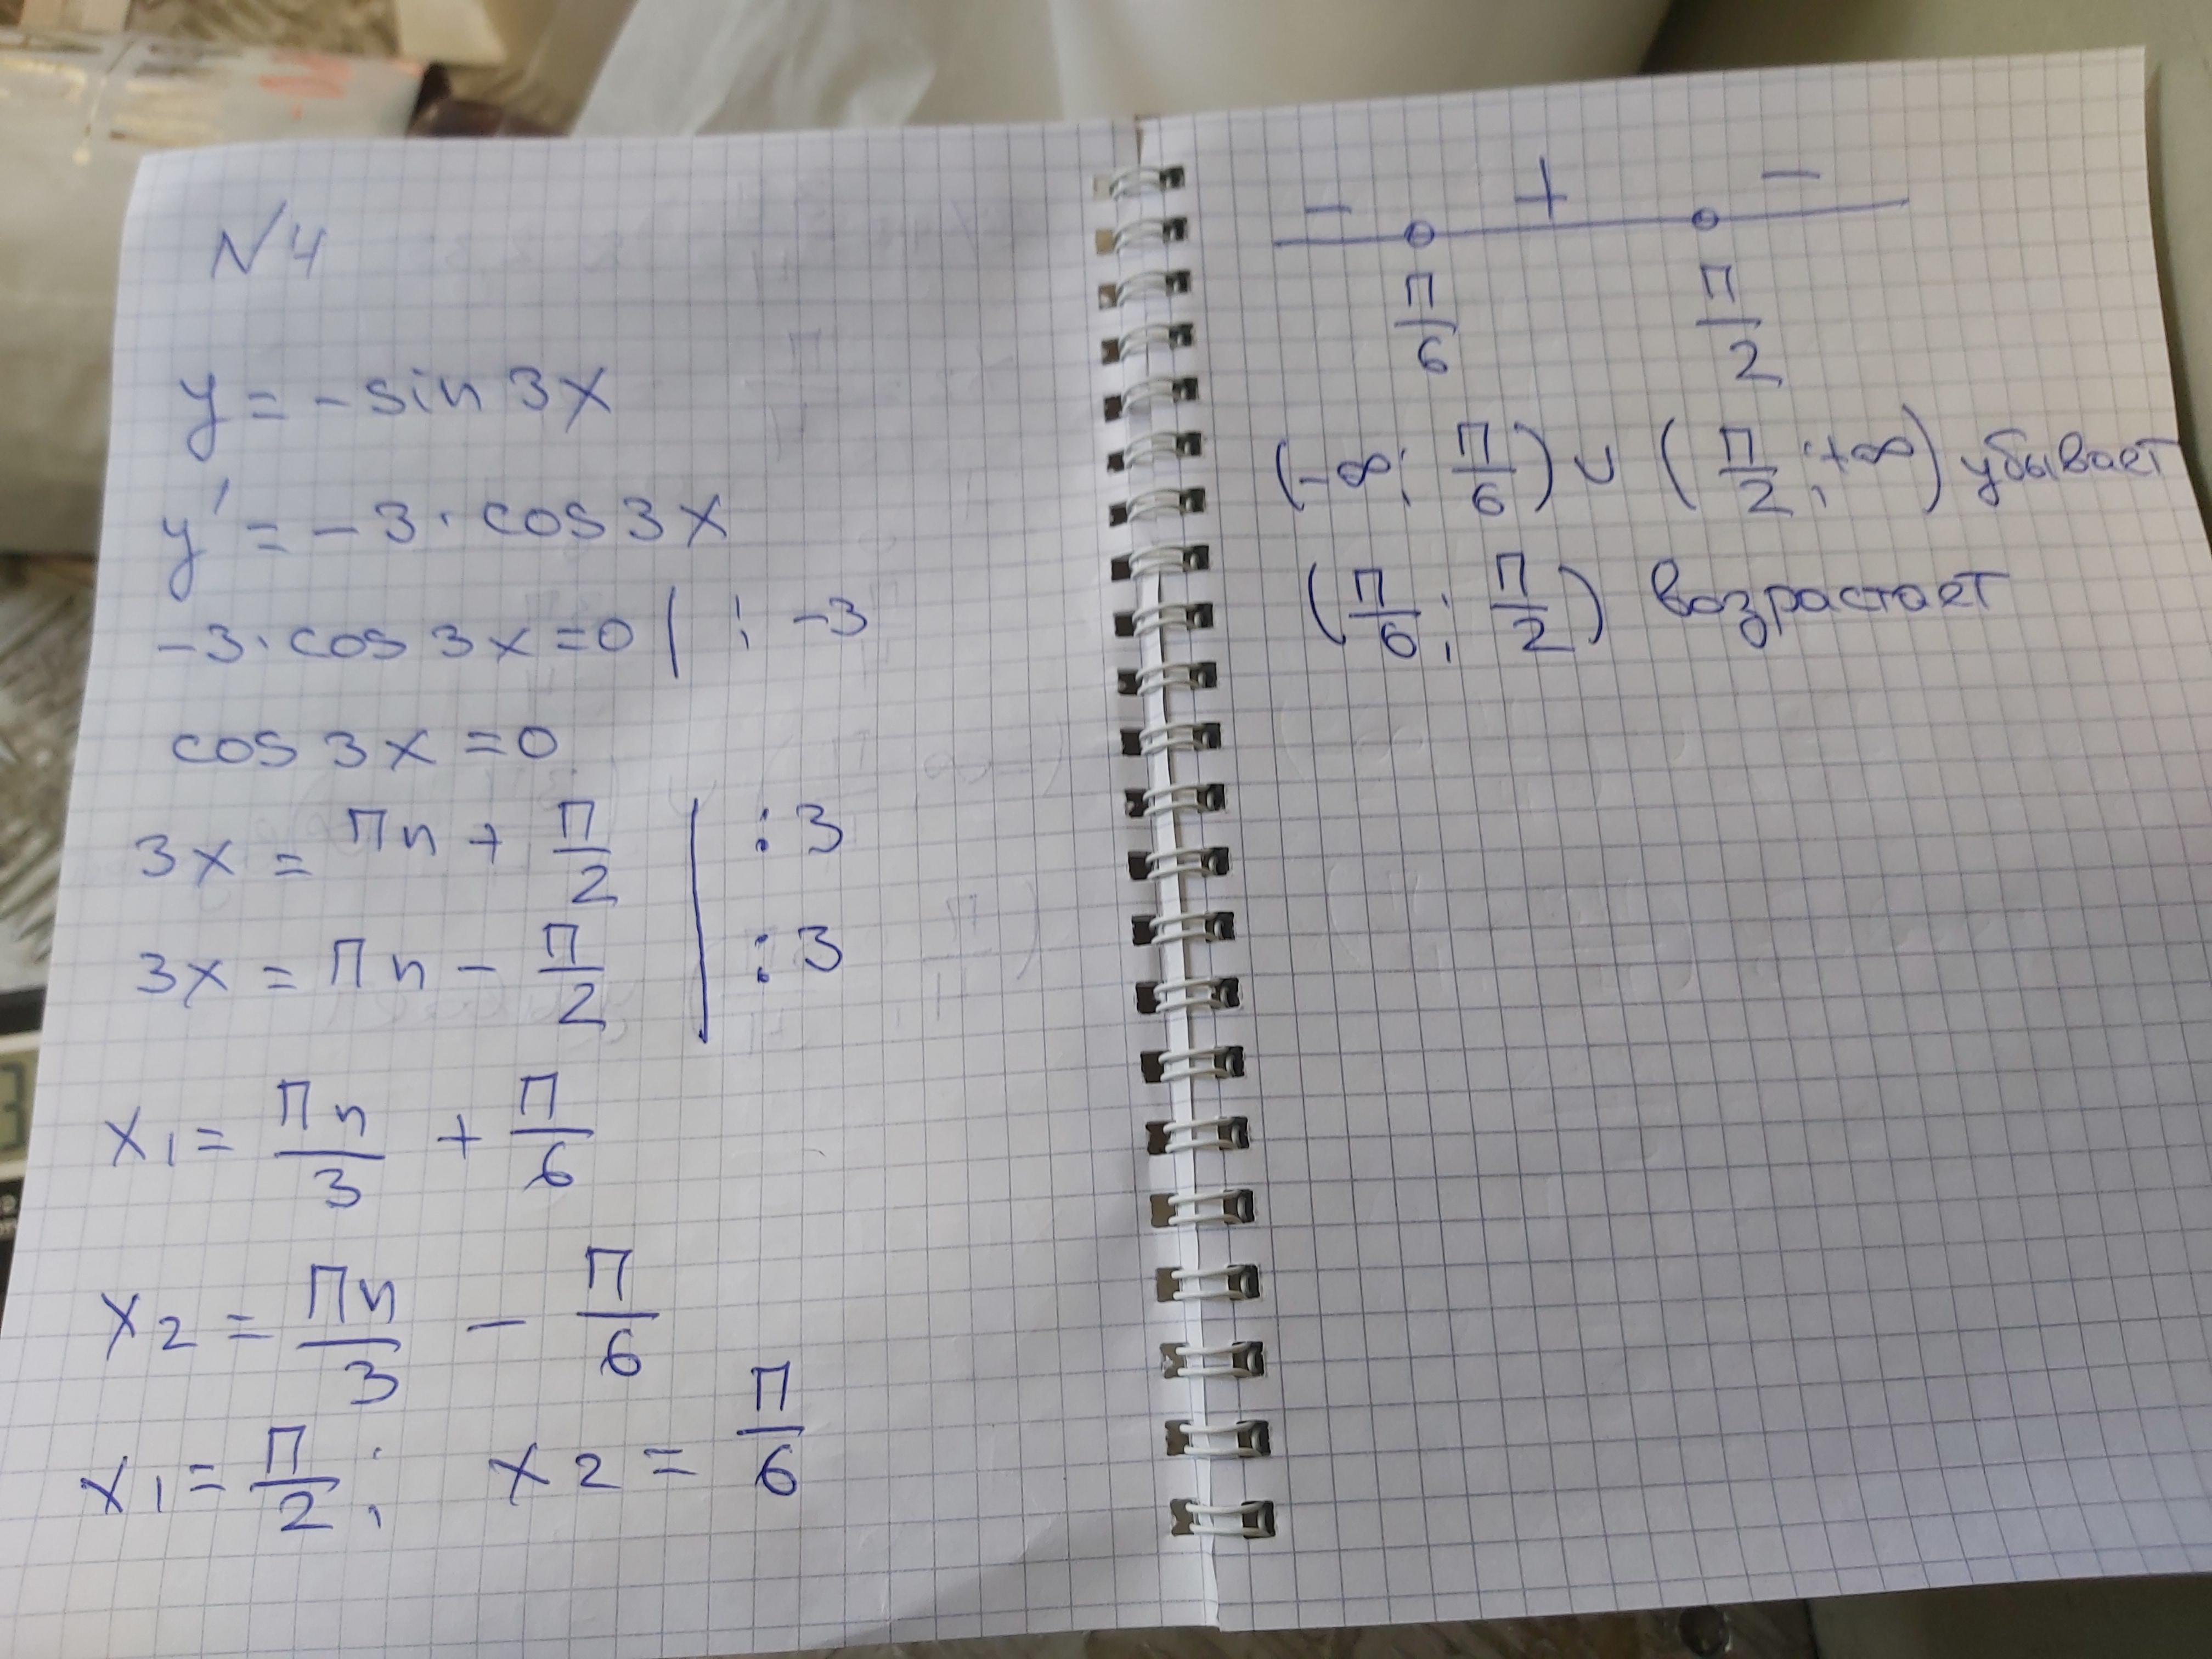 N4
y = -sin 3x
y' = -3 · cos 3x
-3 · cos 3x = 0 | : -3
cos 3x = 0
3x = πn + π/2 | : 3
3x = πn - π/2 | : 3
x1 = πn/3 + π/6
x2 = πn/3 - π/6
x1 = π/2; x2 = π/6
- + -
π/6 π/2
(-∞; π/6) ∪ (π/2; +∞) убывает
(π/6; π/2) возрастает